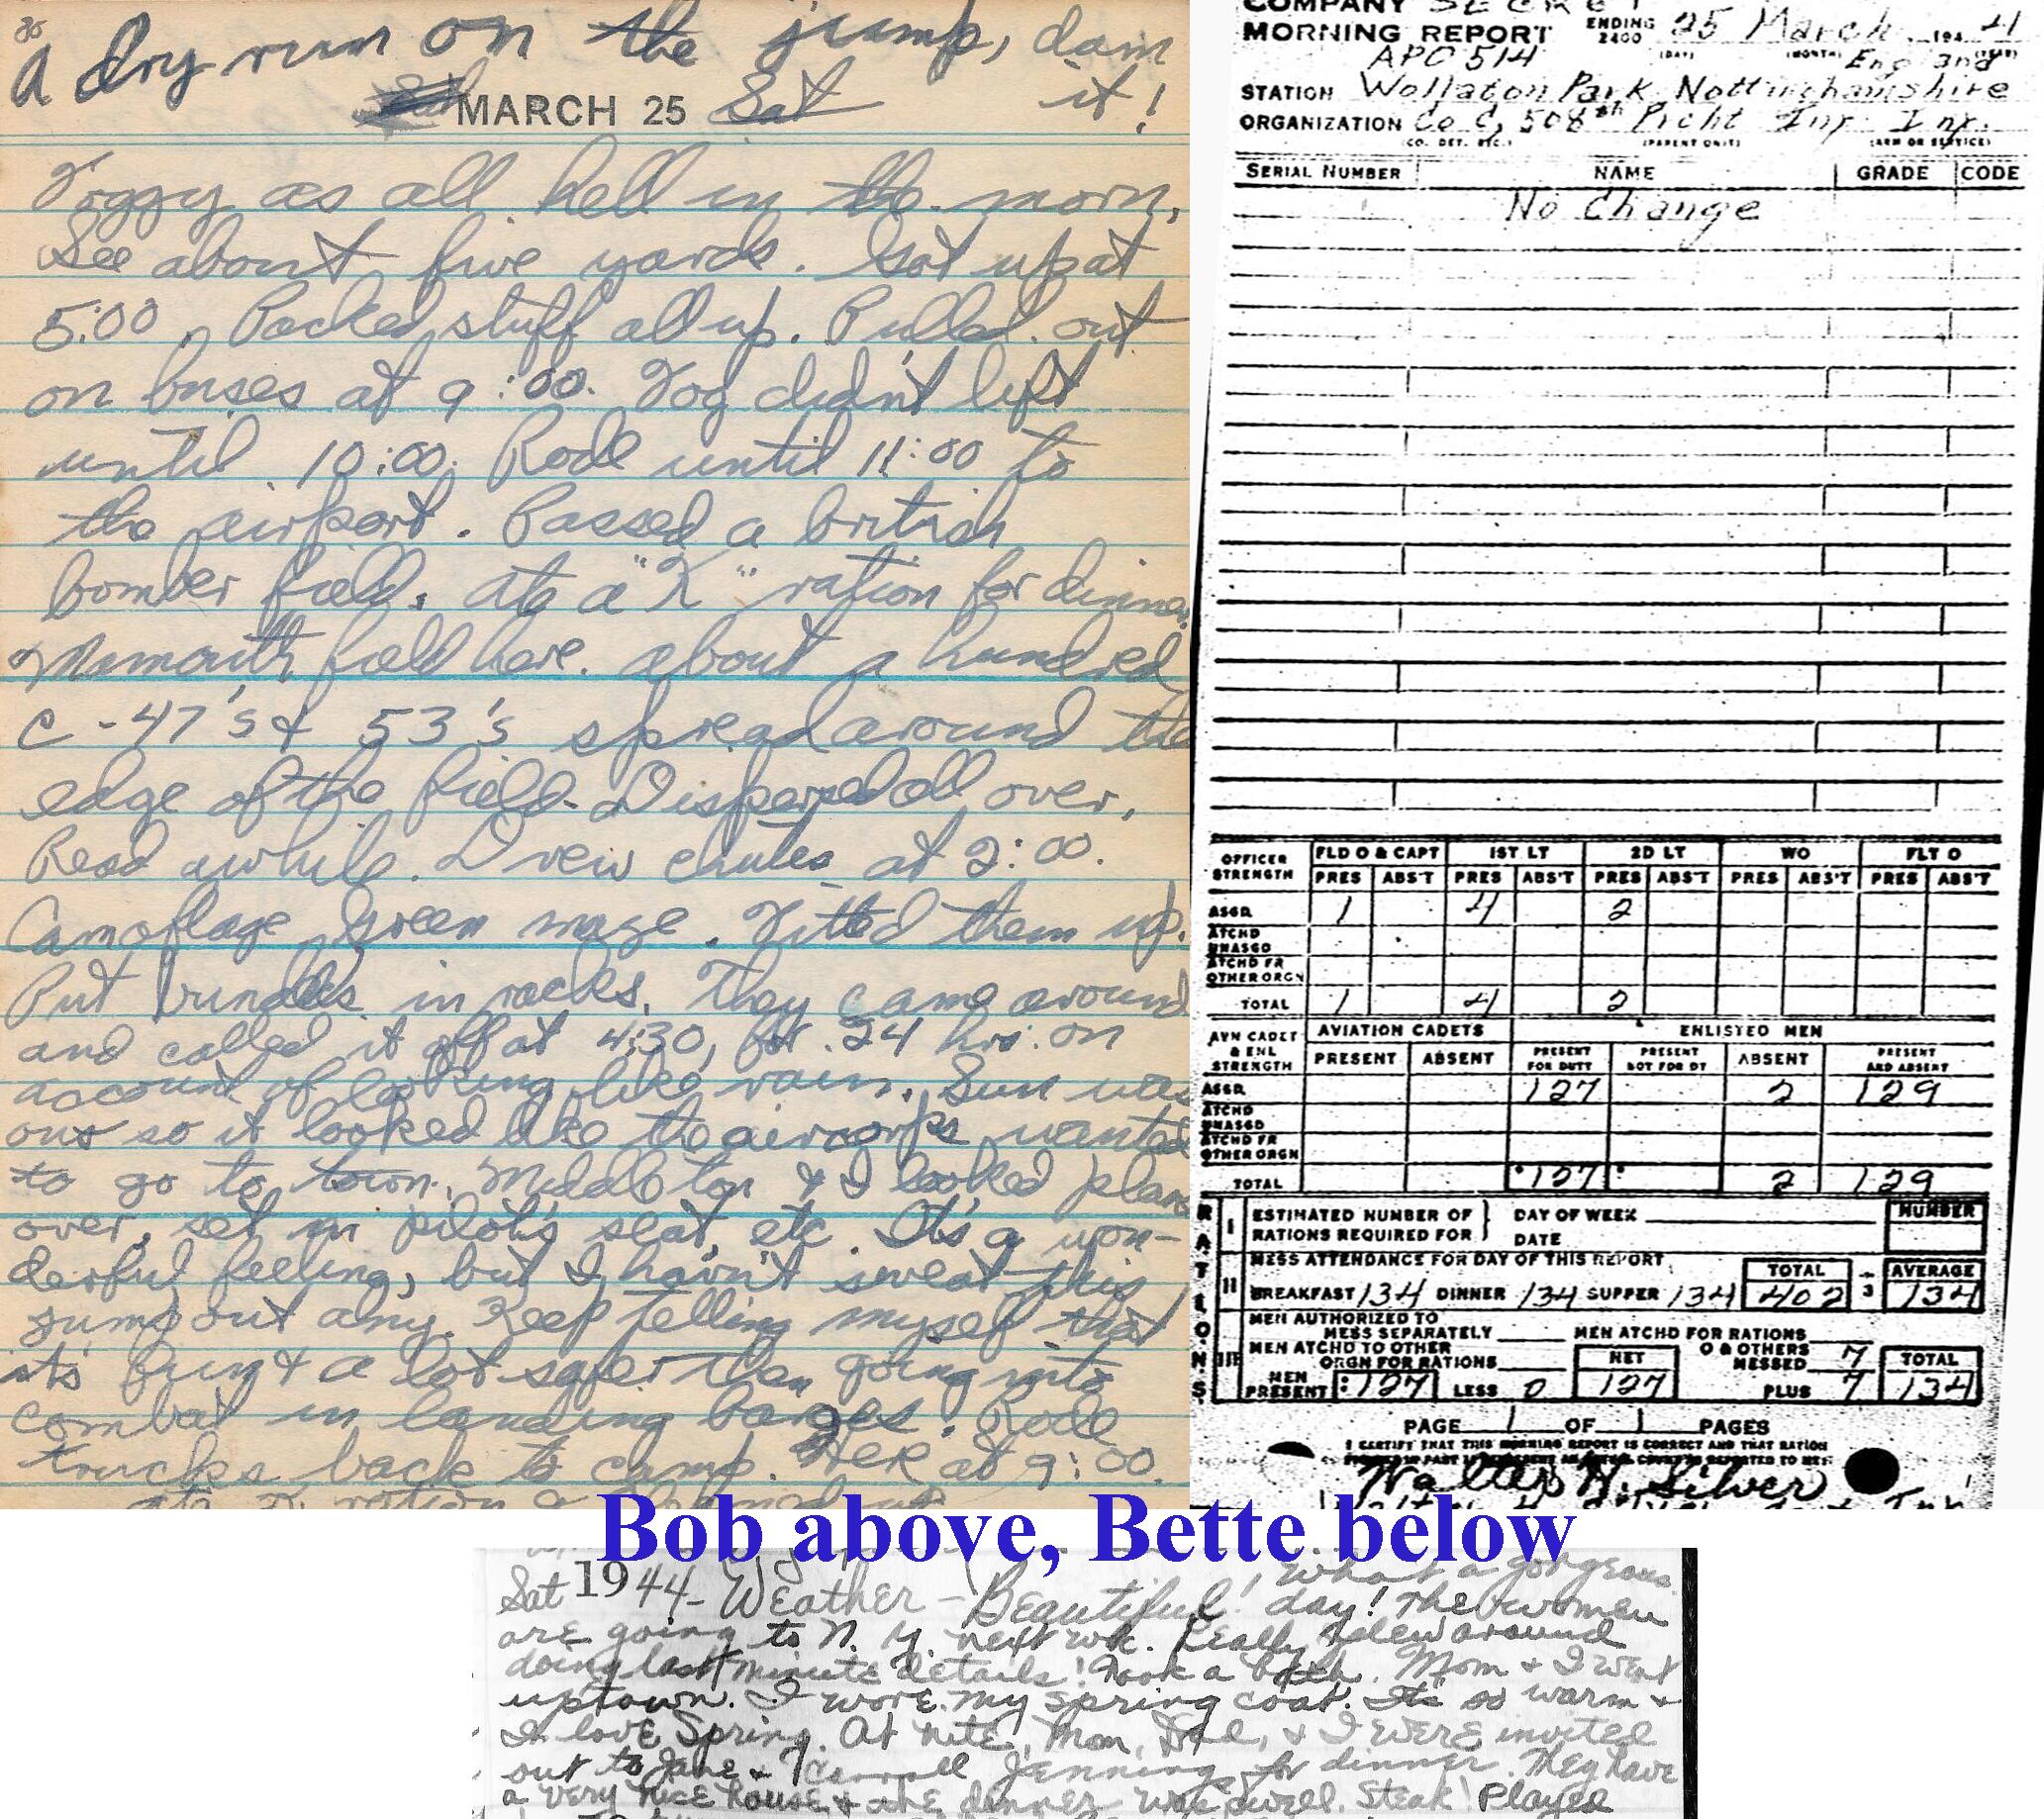 a dry run on the jump, dam
MARCH 25 Sat it!
Foggy as all hell in the morn.
See about five yards. Got up at
5:00. Packed stuff all up. Pulled out
on buses at 9:00. Fog didn't lift
until 10:00. Rode until 11:00 to
the airport. Passed a british
bomber field. Ate a "K" ration for dinner.
Mamouth field here. about a hundred
C-47's & 53's spread around the
edge of the field. Dispersed all over.
Read awhile. Drew chutes at 2:00.
Camoflage green mage. Fitted them up.
Put bundles in racks. They came around
and called it off at 4:30, for 24 hrs. on
account of looking like rain. Sun was
out so it looked like the aircorps wanted
to go to town. Middleton & I looked plane
over, set in pilot's seat, etc. It's a won-
derful feeling, but I havn't sweat this
jump out any. Keep telling myself that
it's fun & a lot safer then going into
combat in landing barges. Rode
trucks back to camp. Here at 9:00.
COMPANY SECRET
MORNING REPORT ENDING 2400 25 March 194 4
(DAY) (MONTH) (YEAR)
APO 514 England
STATION Wollaton Park Nottinghamshire
ORGANIZATION Co C, 508th Prcht Inf Inf.
(CO. DET. ETC.) (PARENT UNIT) (ARM OR SERVICE)
SERIAL NUMBER NAME GRADE CODE
No Change
OFFICER STRENGTH FLD O & CAPT 1ST LT 2D LT WO FLT O
PRES ABS'T PRES ABS'T PRES ABS'T PRES ABS'T PRES ABS'T
ASGD 1 4 2
ATCHD UNASGD
ATCHD FR OTHER ORGN
TOTAL 1 4 2
AVN CADET & ENL STRENGTH AVIATION CADETS ENLISTED MEN
PRESENT ABSENT PRESENT FOR DUTY PRESENT NOT FOR DY ABSENT PRESENT AND ABSENT
ASGD 127 2 129
ATCHD UNASGD
ATCHD FR OTHER ORGN
TOTAL 127 2 129
RATIONS
I ESTIMATED NUMBER OF RATIONS REQUIRED FOR DAY OF WEEK DATE NUMBER
II MESS ATTENDANCE FOR DAY OF THIS REPORT TOTAL AVERAGE
BREAKFAST 134 DINNER 134 SUPPER 134 402 ÷ 3 134
III MEN AUTHORIZED TO MESS SEPARATELY MEN ATCHD FOR RATIONS
MEN ATCHD TO OTHER ORGN FOR RATIONS NET O & OTHERS MESSED 7 TOTAL
MEN PRESENT 127 LESS 0 127 PLUS 7 134
PAGE 1 OF 1 PAGES
I CERTIFY THAT THIS MORNING REPORT IS CORRECT AND THAT RATION
Walter H. Silver
Bob above, Bette below
Sat 1944 - Weather - Beautiful! What a gorgeous
day! The women
are going to N.Y. next wk. Really flew around
doing last minute details! Took a bath. Mom & I went
uptown. I wore my spring coat. It's so warm &
I love Spring. At nite, Mom, Dad, & I were invited
out to Jane & Carroll Jennings for dinner. They have
a very nice house & the dinner was swell. Steak! Played